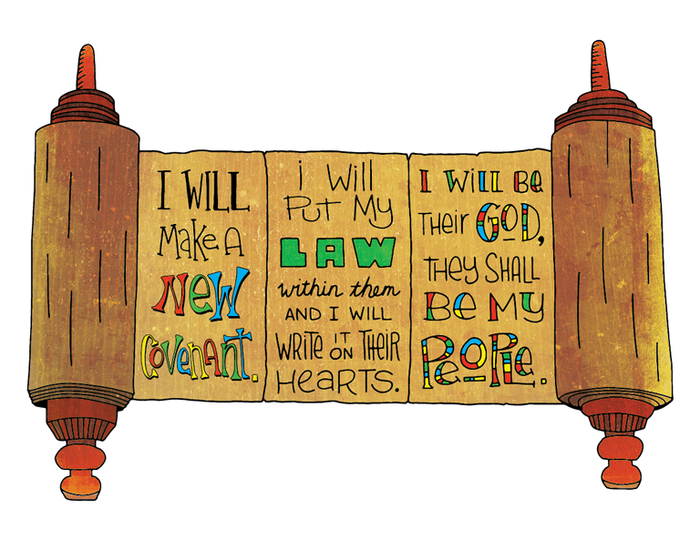 I WILL
Make A
NeW
Covenant.
i Will
Put My
LAW
within them
AND I WILL
WRiTE iT ON THEiR
HeARTS.
I WiLL Be
Their GOD,
THEY SHALL
Be MY
PeOPLe.